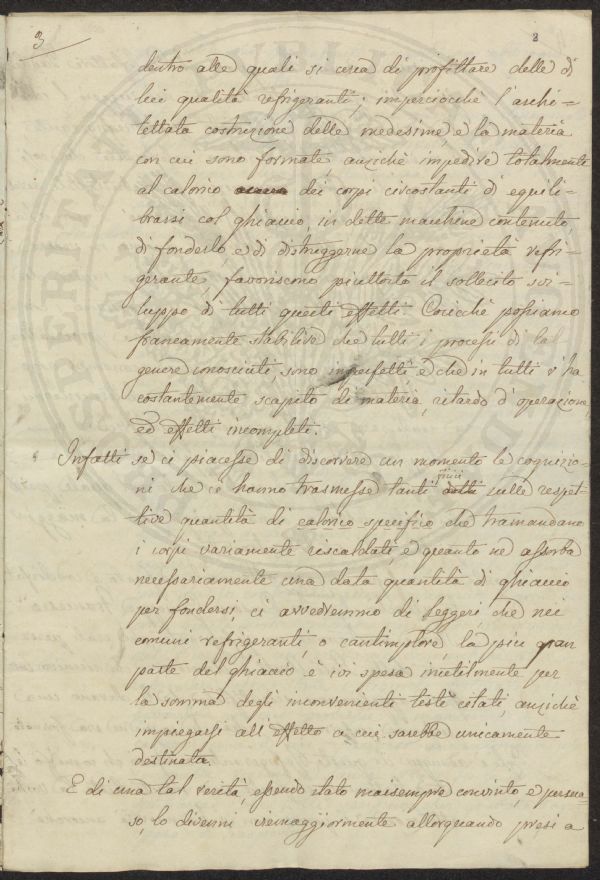 3
2
dentro alle quali si cerca di profittare delle di
lui qualità refrigeranti; imperciocchè l'archi=
tettata costruzione delle medesime, e la materia
con cui sono formate, anzichè impedire totalmente
al calorico dei corpi circostanti di equili=
brarsi col ghiaccio in dette macchine contenuto
di fonderlo e di distruggerne la proprietà refri=
gerante, favoriscono piuttosto il sollecito svi=
luppo di tutti questi effetti. Cosicchè possiamo
francamente stabilire che tutti i processi di tal
genere conosciuti, sono imperfetti e che in tutti v'ha
costantemente scapito di materia, ritardo d'operazione,
ed effetti incompleti.
Infatti se ci piacesse di discorrere un momento le cognizio=
fisici
ni che ci hanno trasmesse tanti dotti sulle respet=
tive quantità di calorico specifico che tramandano
i corpi variamente riscaldati, e quanto ne assorba
necessariamente una data quantità di ghiaccio
per fondersi, ci avvedremmo di leggeri, che nei
comuni refrigeranti, o cantimplore, la più gran
parte del ghiaccio è ivi spesa inutilmente per
la somma degli inconvenienti testè citati, anzichè
impiegarsi all'effetto a cui sarebbe unicamente
destinata.
E di una tal verità, essendo stato maisempre convinto, e persua=
so, lo divenni viemaggiormente allorquando presi a